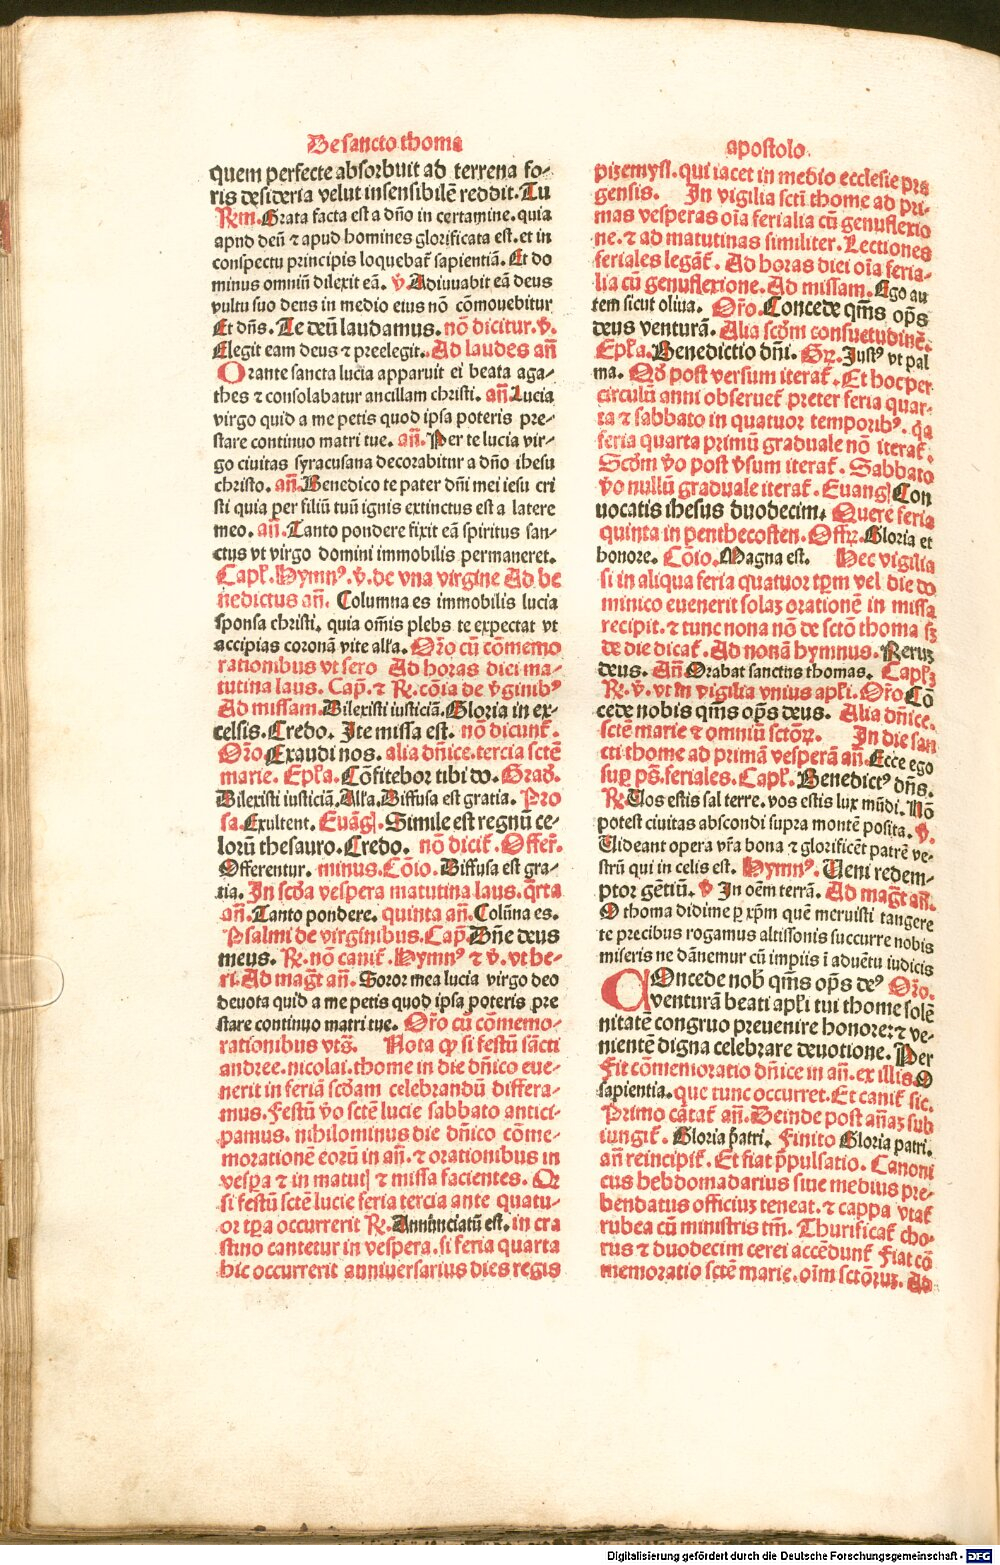 De sancto thoma
apostolo
quem perfecte absorbuit ad terrena fo-
ris desideria velut insensibilē reddit. Tu
Rm. Grata facta est a dño in certamine. quia
apud deū ⁊ apud homines glorificata est. et in
conspectu principis loquebat̄ sapientiā. Et do
minus omniū dilexit eā. v̄ Adiuuabit eā deus
vultu suo deus in medio eius nō cōmouebitur
Et dn̄s. Te deū laudamus. nō dicitur. v̄.
Elegit eam deus ⁊ preelegit. Ad laudes añ
Orante sancta lucia apparuit ei beata aga-
thes ⁊ consolabatur ancillam christi. añ. Lucia
virgo quid a me petis quod ipsa poteris pre-
stare continuo matri tue. añ. Per te lucia vir-
go ciuitas syracusana decorabitur a dño ihesu
christo. añ. Benedico te pater dñi mei iesu cri
sti quia per filiū tuū ignis extinctus est a latere
meo. añ. Tanto pondere fixit eā spiritus san-
ctus vt virgo domini immobilis permaneret.
Capl̄. Hymnꝰ. v̄. de vna virgine Ad be
nedictus añ. Columna es immobilis lucia
sponsa christi. quia om̄is plebs te expectat vt
accipias coronā vite all'a. Oro cū cōmemo
rationibus vt sero Ad horas dici ma-
tutina laus. Cap̄. ⁊ R̄. cōia de v̄ginibꝰ
Ad missam. Dilexisti iusticiā. Gloria in ex-
celsis. Credo. Ite missa est. nō dicunt̄.
Oro Exaudi nos. alia dñice. tercia scte
marie. Epl̄a. Cōfitebor tibi do. Grad̄.
Dilexisti iusticiā. All'a. Diffusa est gratia. Pro
sa. Exultent. Euāḡ. Simile est regnū ce-
lorū thesauro. Credo. nō dicit̄. Offer̄.
Offerentur. minus. Cōio. Diffusa est gra-
tia. In scd̄a vespera matutina laus. q̄rta
añ. Tanto pondere. quinta añ. Colūna es.
Psalmi de virginibus. Cap̄. Dñe deus
meus. R̄. nō canit̄. Hymnꝰ ⁊ v̄. vt he-
ri. Ad maḡt añ. Soror mea lucia virgo deo
deuota quid a me petis quod ipsa poteris pre
stare continuo matri tue. Oro cū cōmemo-
rationibus vts̄. Nota ꝙ si festū sācti
andree. nicolai. thome in die dñico eue-
nerit in feriā scd̄am celebrandū differa-
mus. Festū v̄o scte lucie sabbato antici-
pamus. nihilominus die dñico cōme-
morationē eorū in añ. ⁊ orationibus in
vesp̄a ⁊ in matut̄ ⁊ missa facientes. Qꝫ
si festū scte lucie feria tercia ante quatu-
or tp̄a occurrerit R̄. Annūnciatū est. in cra
stino cantetur in vespera. si feria quarta
hic occurrerit anniuersarius dies regis
przemysl. qui iacet in medio ecclesie pra
gensis. In vigilia scti thome ad pri-
mas vesperas oīa ferialia cū genuflexio
ne. ⁊ ad matutinas similiter. Lectiones
feriales legāt̄. Ad horas dici oīa feria-
lia cū genuflexione. Ad missam. Ego au
tem sicut oliua. Oro. Concede qm̄s op̄s
deus venturā. Alia scd̄m consuetudinē.
Epl̄a. Benedictio dñi. Gr̄. Justꝰ vt pal
ma. Qd̄ post versum iterat̄. Et hoc per
circulū anni obseruet̄ preter feria quar-
ta ⁊ sabbato in quatuor temporibꝰ. q̄a
feria quarta primū graduale nō iterat̄.
Scd̄m v̄o post v̄sum iterat̄. Sabbato
v̄o nullū graduale iterat̄. Euanḡ Con
uocatis ihesus duodecim. Quere feria
quinta in penthecosten. Offr̄. Gloria et
honore. Cōio. Magna est. Hec vigilia
si in aliqua feria quatuor tp̄m vel die do
minico euenerit solaꝫ orationē in missa
recipit. ⁊ tunc nona nō de scto thoma sꝫ
de die dicat̄. Ad nonā hymnus. Rerum
deus. Añ Orabat sanctus thomas. Capl̄ꝫ
R̄. v̄. vt in vigilia vnius apl̄i. Oro Cō
cede nobis qm̄s op̄s deus. Alia dñice.
scte marie ⁊ omniū sctoꝝ. In die san
cti thome ad primā vesperā añ. Ecce ego
sup̄ ps̄. feriales. Capl̄. Benedictꝰ dñs.
R̄. Uos estis sal terre. vos estis lux mūdi. Nō
potest ciuitas abscondi supra montē posita. v̄.
Uideant opera vr̄a bona ⁊ glorificēt patrē ve-
strū qui in celis est. Hymnꝰ. Ueni redem-
ptor gētiū. v̄ In oēm terrā. Ad maḡt añ.
O thoma didime ꝑ xp̄m quē meruisti tangere
te precibus rogamus altissonis succurre nobis
miseris ne dānemur cū impiis ī aduētu iudicis
COncede nob̄ qm̄s op̄s deꝰ Oro.
venturā beati apl̄i tui thome solē
nitatē congruo preuenire honore: ⁊ ve-
nientē digna celebrare deuotione. Per
Fit cōmemoratio dñice in añ. ex illis O
sapientia. que tunc occurret. Et canit̄ sic.
Primo cātat̄ añ. Deinde post añaꝫ sub
iungit̄. Gloria p̄atri. Finito Gloria patri.
añ reincipit̄. Et fiat p̄pulsatio. Canoni
cus hebdomadarius siue medius pre-
bendatus officiuꝫ teneat. ⁊ cappa vtat̄
rubea cū ministris tm̄. Thurificat̄ cho-
rus ⁊ duodecim cerei accēdunt̄ Fiat cō
memoratio scte marie. oīm sctōꝝ. Ad
Digitalisierung gefördert durch die Deutsche Forschungsgemeinschaft - DFG